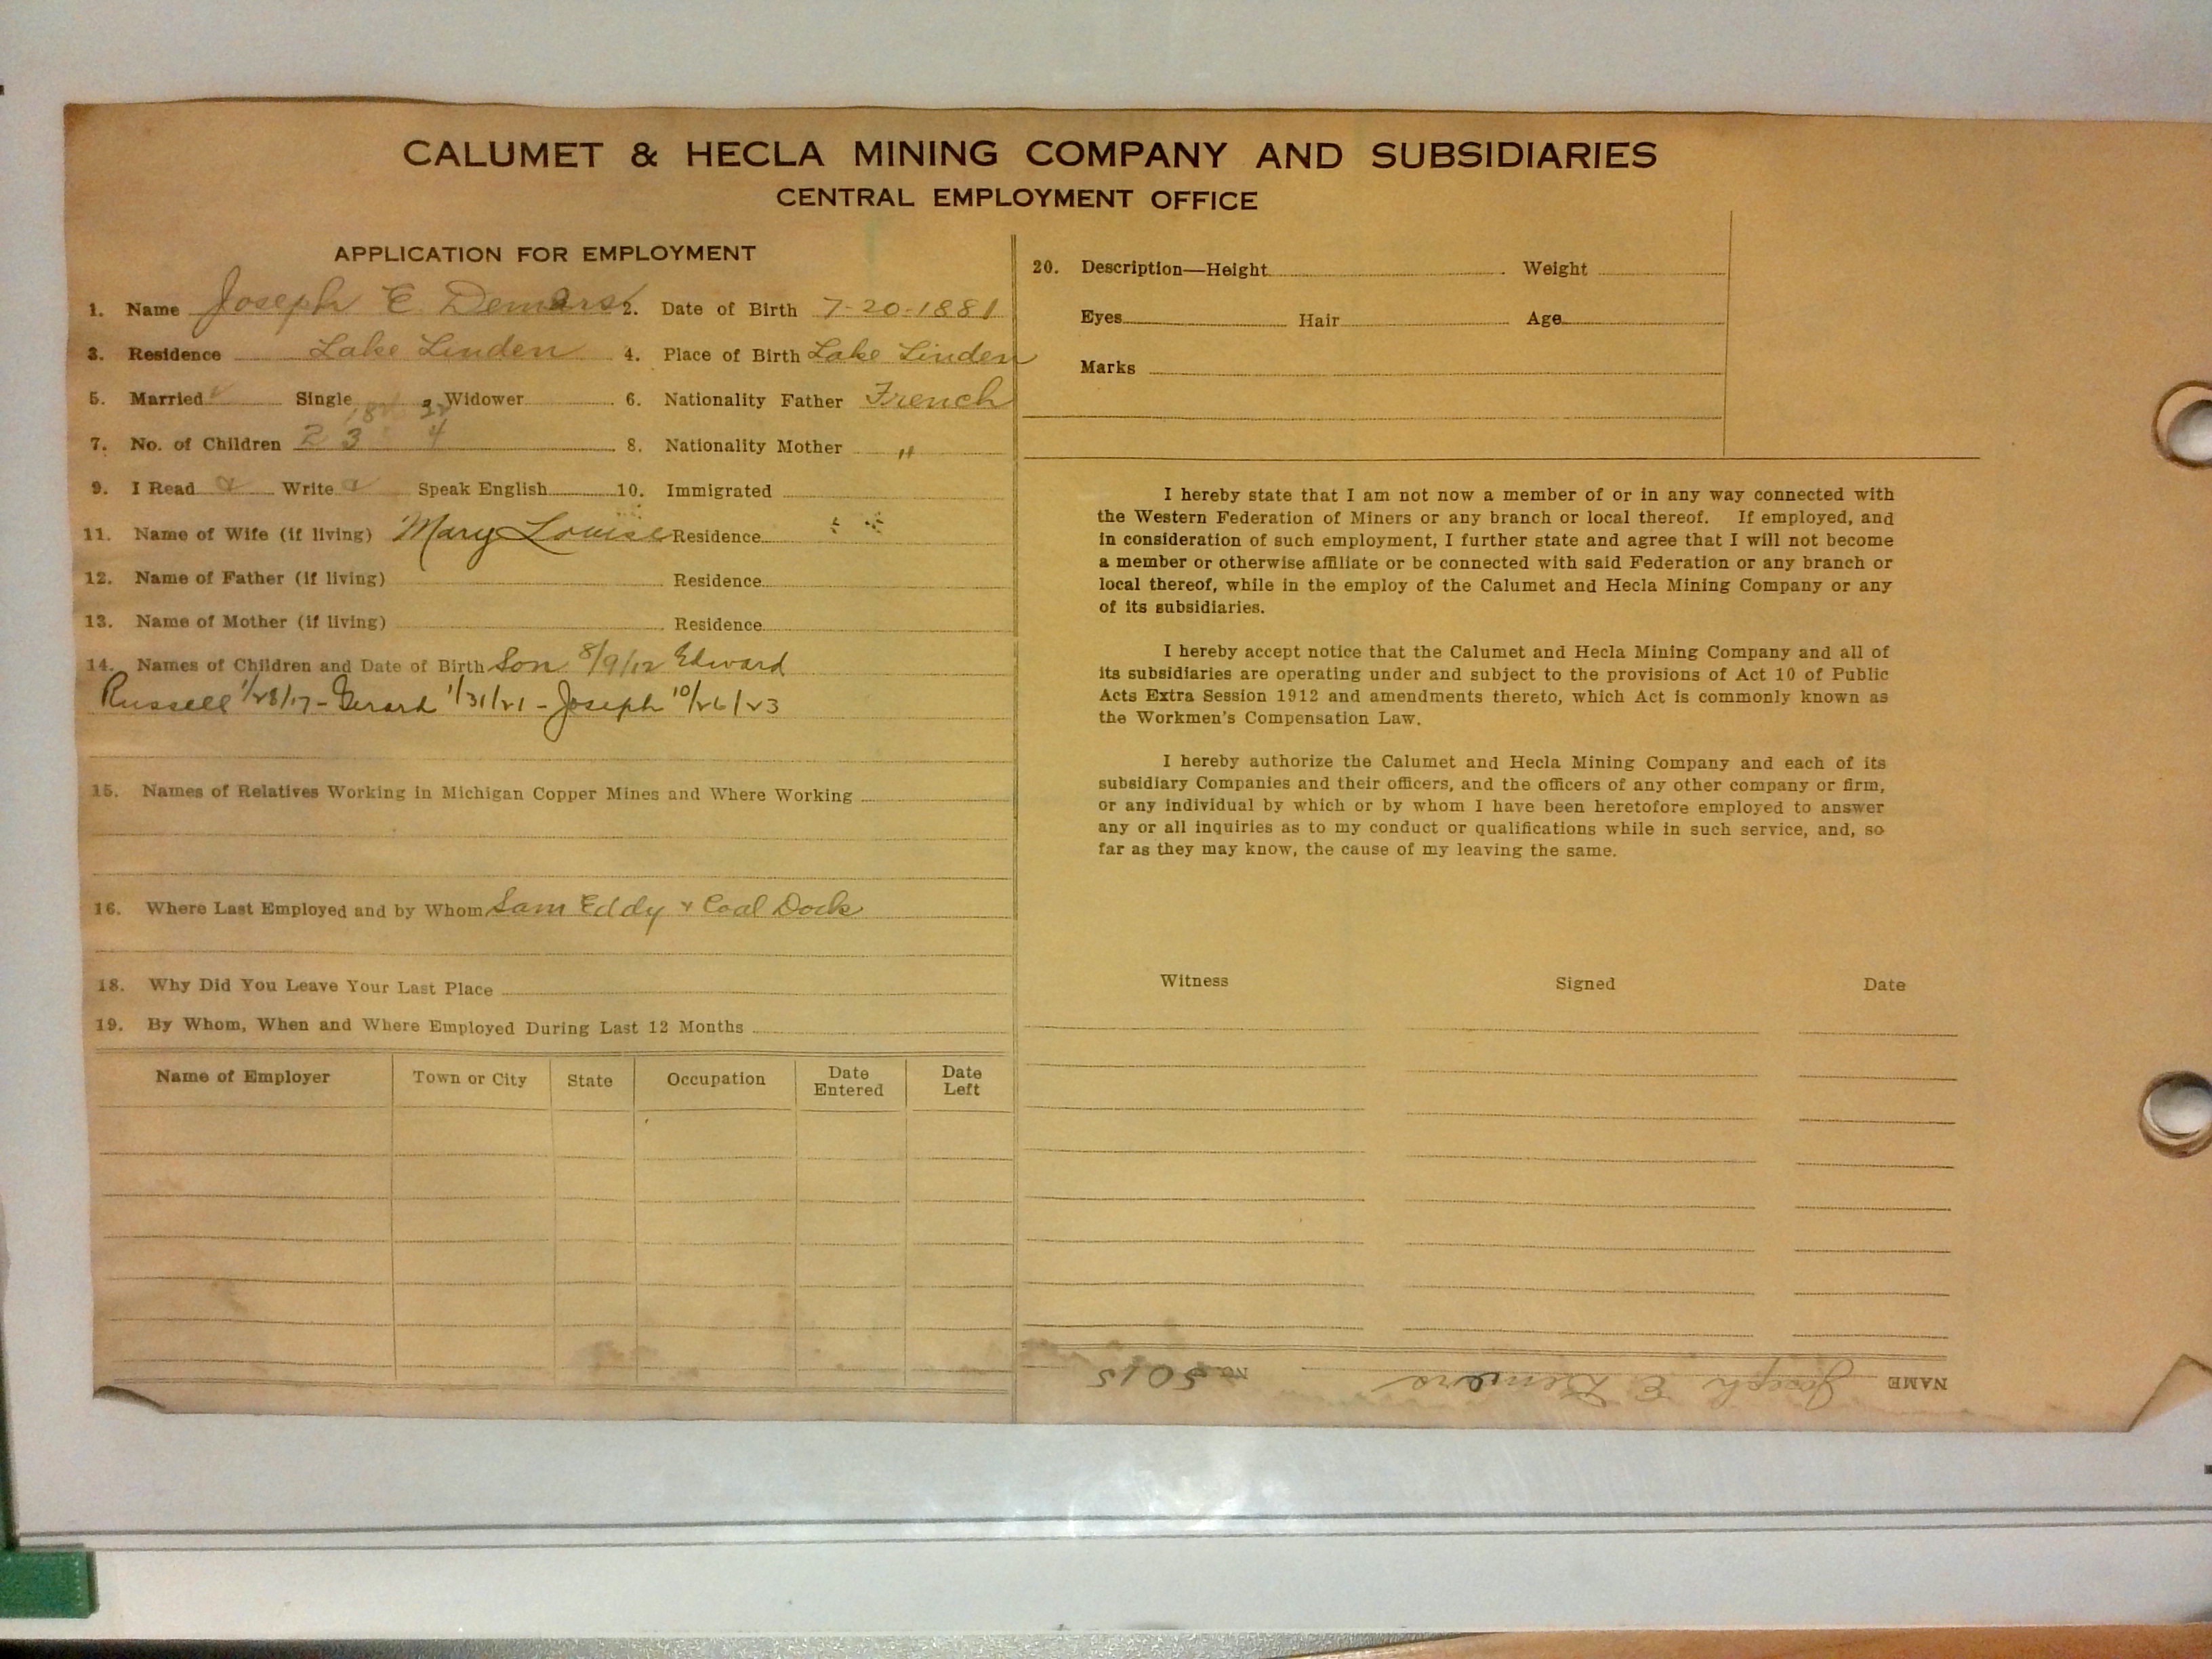 CALUMET & HECLA MINING COMPANY AND SUBSIDIARIES
CENTRAL EMPLOYMENT OFFICE
APPLICATION FOR EMPLOYMENT
1. Name Joseph E Demars 2. Date of Birth 7-20-1881
3. Residence Lake Linden 4. Place of Birth Lake Linden
5. Married Single Widower 6. Nationality Father French
7. No. of Children 2 3 4 8. Nationality Mother "
9. I Read Write Speak English 10. Immigrated
11. Name of Wife (if living) Mary Louise Residence
12. Name of Father (if living) Residence
13. Name of Mother (if living) Residence
14. Names of Children and Date of Birth Son 8/9/12 Edward
Russell 1/28/17 - Gerard 1/31/21 - Joseph 10/26/23
15. Names of Relatives Working in Michigan Copper Mines and Where Working
16. Where Last Employed and by Whom Sam Eddy & Coal Dock
18. Why Did You Leave Your Last Place
19. By Whom, When and Where Employed During Last 12 Months
Name of Employer Town or City State Occupation Date Entered Date Left
20. Description—Height Weight
Eyes Hair Age
Marks
I hereby state that I am not now a member of or in any way connected with
the Western Federation of Miners or any branch or local thereof. If employed, and
in consideration of such employment, I further state and agree that I will not become
a member or otherwise affiliate or be connected with said Federation or any branch or
local thereof, while in the employ of the Calumet and Hecla Mining Company or any
of its subsidiaries.
I hereby accept notice that the Calumet and Hecla Mining Company and all of
its subsidiaries are operating under and subject to the provisions of Act 10 of Public
Acts Extra Session 1912 and amendments thereto, which Act is commonly known as
the Workmen's Compensation Law.
I hereby authorize the Calumet and Hecla Mining Company and each of its
subsidiary Companies and their officers, and the officers of any other company or firm,
or any individual by which or by whom I have been heretofore employed to answer
any or all inquiries as to my conduct or qualifications while in such service, and, so
far as they may know, the cause of my leaving the same.
Witness Signed Date
NAME Joseph E Demers No. 5015